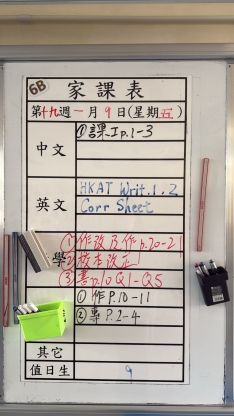 6B
家課表
第十九週一月9日(星期五)
中文
①課工p.1-3
英文
HKAT Writ.1.2
Corr Sheet
①作改及作p.20-21
學
②校本改正
③書p.10Q1-Q5
①作P.10-11
②專P.2-4
其它
值日生
9